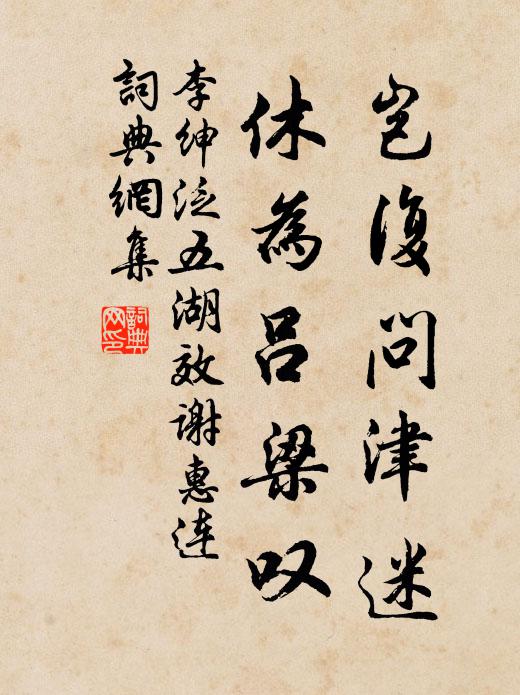 岂復问津迷
休為吕梁叹
李绅泛五湖效谢惠连
词典網集
詞典网印